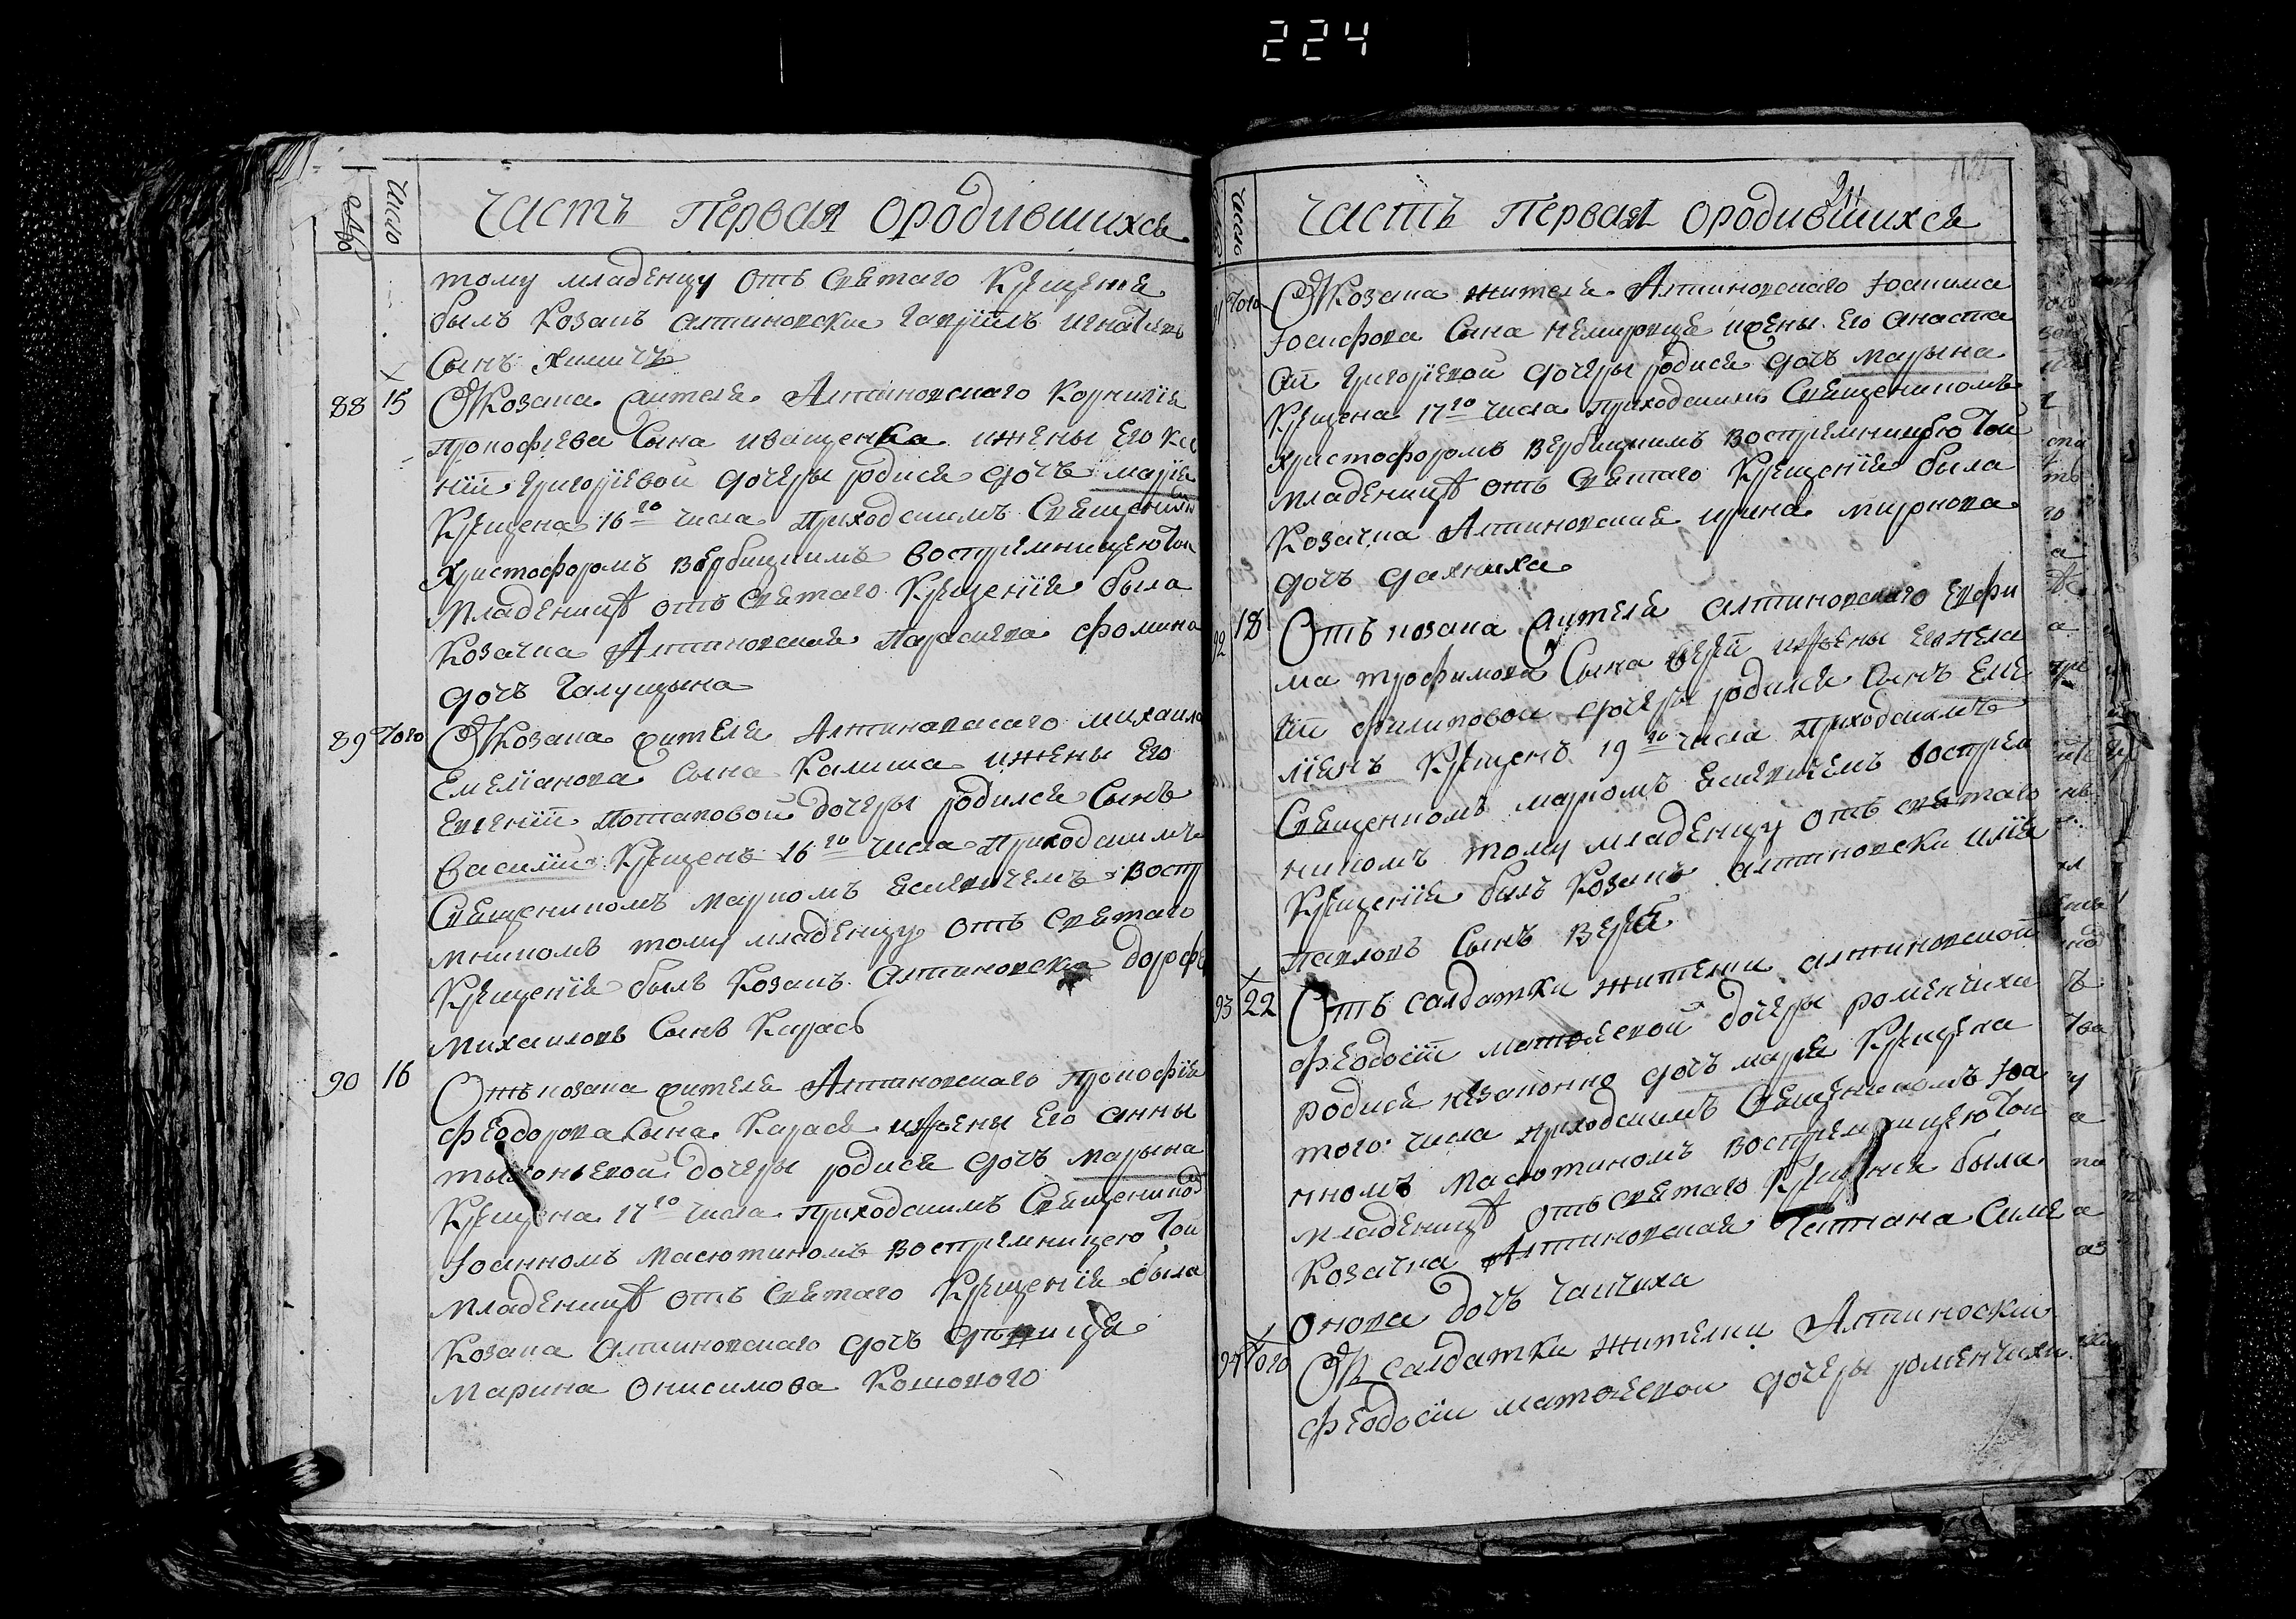 224
№
Число
Часть первая ородившихся
тому младенцу отъ святаго крещенія
былъ козакъ алтиновски гавріилъ игнатіевъ
сынъ химичъ
88 15 От козака жителя Алтиновского Корнилія
прокофіева сына иващенка ижены его ксе
ніи григоріевой дочери родися дочъ марія
крещена 16го числа приходскимъ священником
христофоромъ вербицкимъ восприемницею той
младеницѣ отъ святаго крещенія была
козачка Алтиновская параскева фомина
дочъ галущина
89 того От козака жителя Алтиновского михаила
Емеліанова сына калиша ижены его
евгеніи потаповой дочери родился сынъ
василій крещенъ 16го числа приходскимъ
священикомъ маркомъ восприем
никомъ тому младенцу отъ святаго
крещенія былъ козакъ алтиновски дорофе
михаиловъ сынъ карась
90 16 Отъ козака жителя Алтиновского прокофія
феодорова сына карася ижены его анны
родися дочъ марына
крещена 17го числа приходскимъ священником
Іоанномъ масютиномъ восприемницею той
младеницѣ отъ святаго крещенія была
козака алтиновского дочъ девица
марина онисимова кошового
Число
Часть первая ородившихся
91 того От козака жителя Алтиновского Іоакима
Іосифова сына немировце ижены его анаста
сіи григоріевой дочери родися дочъ марына
крещена 17го числа приходскимъ священикомъ
христофоромъ вербицкимъ восприемницею той
младеницѣ отъ святаго крещенія была
козачка Алтиновская ирина миронова
дочъ дахниха
92 18 Отъ козака жителя алтиновского евфи
ма трофимова сына верѣй ижены его пела
гіи филиповой дочери родился сынъ еме
ліянъ крещенъ 19го числа приходскимъ
священикомъ маркомъ восприем
никомъ тому младенцу отъ святаго
крещенія былъ козакъ алтиновски илія
павловъ сынъ верѣй
93 22 Отъ салдатки жителки алтиновской
феодосіи матвѣевой дочери роменчихи
родися незаконно дочъ марія крещена
того числа приходскимъ священикомъ Іоа
нномъ масютиномъ восприемницею той
младеницѣ отъ святаго крещенія была
козачка Алтиновская татіана симе
онова дочъ
94 того От салдатки жителки Алтиноской
феодосіи матвѣевой дочери роменчихи